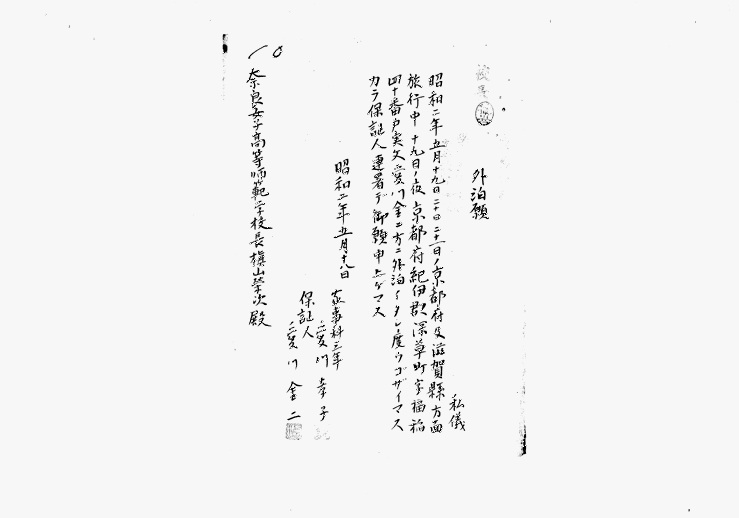 外泊願
私儀
昭和二年五月十九日二十日二十一日ノ京都府及滋賀縣方面
旅行中十九日ノ夜京都府紀伊郡深草町字福稲
四十番戸実父愛川金二方ニ外泊イタシ度ウゴザイマス
カラ保証人連署デ御願申上ゲマス
昭和二年五月十八日
家事科三年
愛川幸子
保証人
愛川金二
奈良女子高等師範学校長槇山榮次殿